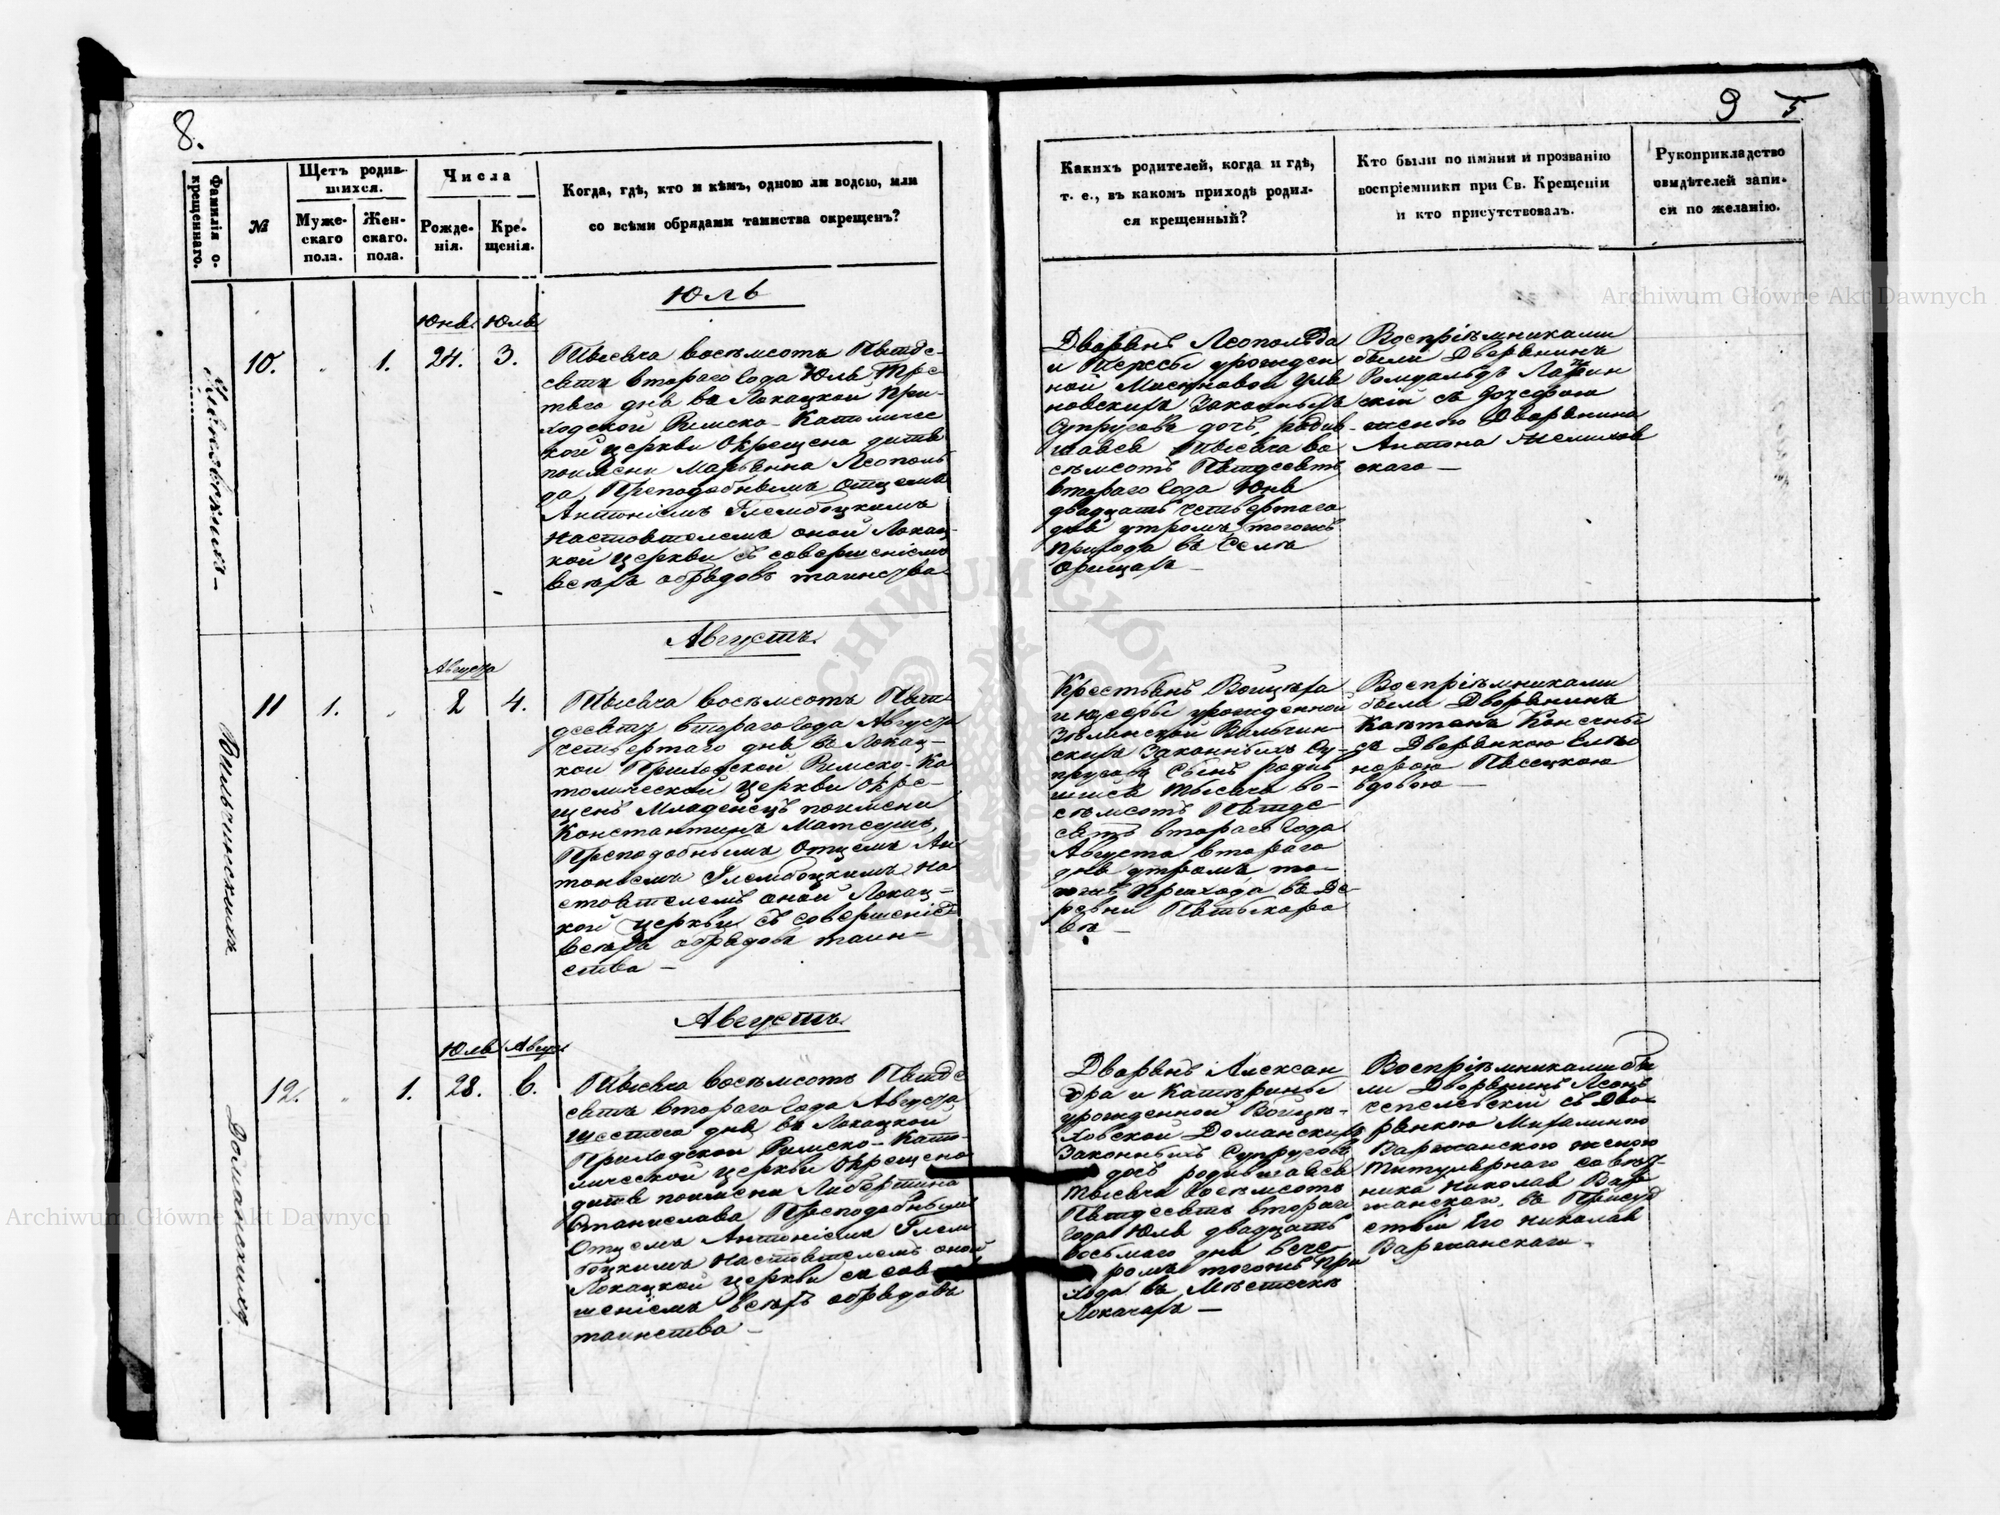 8.
Фамилія о-
крещеннаго.
№
Щетъ родив-
шихся.
Муже-
скаго
пола.
Жен-
скаго.
пола.
Числа
Рожде-
нія.
Кре-
щенія.
Когда, гдѣ, кто и кѣмъ, одною ли водою, или
со всѣми обрядами таинства окрещенъ?
Юль
Юнь. Юля
10. 1. 24. 3.
Тысяча восѣмсотъ Пятде-
сятъ втораго Года Юля Тре-
тяго дня въ Локацкой При-
ходской Римско-Католичес
кой церкви Окрещена дитя
поимени Марьянна Леополь
да, Преподобнымъ Отцемъ
Антоніемъ Глембоцкимъ
Настоятелемъ оной Локац-
кой Церкви съ совершеніемъ
всѣхъ обрядовъ таинства
Августъ.
Августа
11 1. 2 4.
Вильчинскихъ
Тысяча восѣмсотъ Пят-
десятъ втораго Года Августа
четвертаго дня въ Локац-
кой Приходской Римско-Ка
толической церкви Окре-
щенъ Младенецъ поимени
Константинъ Матеушъ,
Преподобнымъ Отцемъ Ан
тоніемъ Глембоцкимъ На
стоятелемъ оной Локац-
кой Церкви съ совершеніемъ
всѣхъ обрядовъ таин-
ства —
Августъ.
Юля Авгус.
12. 1. 28. 6.
Доманскихъ
Тысяча восѣмсотъ Пятде
сятъ втораго Года Августа
Шестого дня въ Локацкой
Приходской Римско-Като-
лической церкви Окрещена
дитя поимени Либертина
Станислава Преподобнымъ
Отцемъ Антоніемъ Глем
боцкимъ Настоятелемъ оной
Локацкой церкви съ сов
шеніемъ всѣхъ обрядовъ
таинства —
9 5
Какихъ родителей, когда и гдѣ,
т. е., въ какомъ приходѣ родил-
ся крещенный?
Кто были по имяни и прозванію
воспріемники при Св. Крещеніи
и кто присутствовалъ.
Рукоприкладство
свидѣтелей запи-
си по желанію.
Дворянъ Леопольда
и Терезы урожден
ной Мисюновой Уля
новскихъ Законныхъ
Супруговъ дочь, родив-
шаяся Тысяча во
сѣмсотъ Пятдесятъ
втораго Года Юня
двадцать четвертаго
дня утромъ тогожъ
Прихода въ Селѣ
Орищахъ —
Воспріѣмниками
были Дворянинъ
Ромуальдъ
скій съ Юзефою
женою Дворянина
Антона
скаго —
Крестьянъ Войцѣха
и Юзефы урожденной
Зѣлинской Вильчин-
скихъ Законныхъ Су-
пруговъ Сынъ родив
шійся Тысяча во-
сѣмсотъ Пятде
сятъ втораго Года
Августа втораго
дня утромъ, то-
гожъ Прихода въ Де-
ревни Пятыкора
въ —
Воспріѣмниками
были Дворянинъ
Каэтанъ
съ Дворянкою Елео
норою Пясецкою
вдовою —
Дворянъ Алексан
дра и Катѣрины
урожденной Войцѣ-
ховской Доманскихъ
Законныхъ Супруговъ
дочь родившаяся
Тысяча восѣмсотъ
Пятдесятъ втораго
Года Юля двадцать
восьмаго дня вече-
ромъ тогожъ При
хода въ Мѣстечкѣ
Локачахъ —
Воспріѣмниками бы
ли Дворянинъ Леонъ
Чепелевскій съ Дво-
рянкою Михалиною
Варжанскою женою
Титулярнаго совѣт-
ника Николая Вар
жанскаго, въ Присуд
ствіи Его Николая
Варжанскаго.
Archiwum Główne Akt Dawnych
Archiwum Główne Akt Dawnych